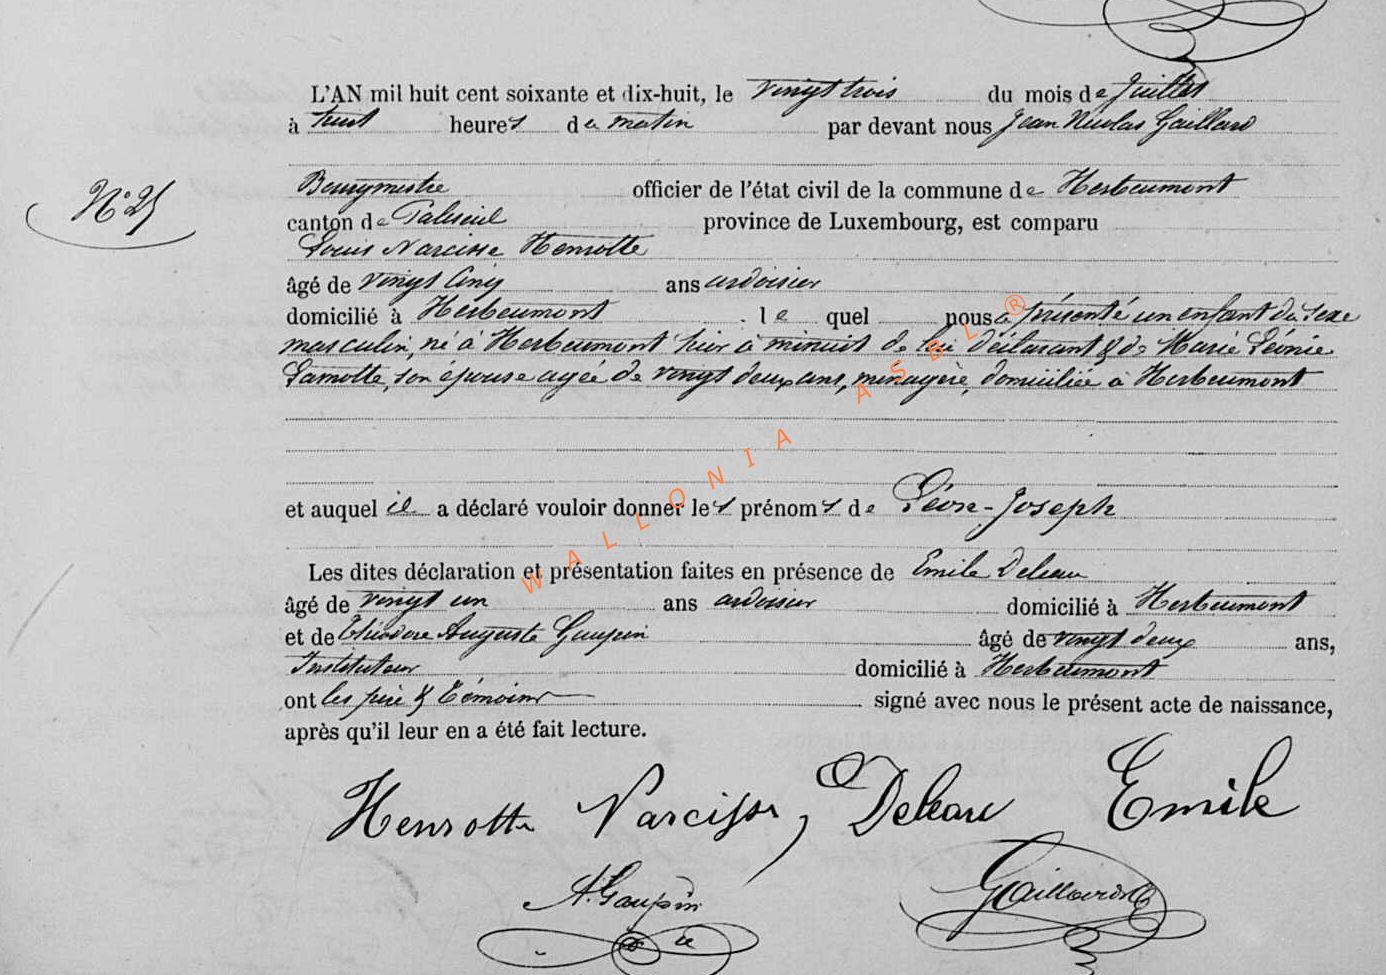 L'AN mil huit cent soixante et dix-huit, le vingt trois du mois de Juillet
à huit heures du matin par devant nous Jean Nicolas Gaillard
Bourgmestre officier de l'état civil de la commune de Herbeumont
N° 25
canton de Paliseul province de Luxembourg, est comparu
Louis Narcisse Henrotte
âgé de vingt cinq ans ardoisier
domicilié à Herbeumont le quel nous a présenté un enfant du sexe
masculin, né à Herbeumont hier à minuit de lui déclarant & de Marie Léonie
Lamotte, son épouse agée de vingt deux ans, ménagère, domiciliée à Herbeumont
et auquel il a déclaré vouloir donner les prénoms de Léon-Joseph
Les dites déclaration et présentation faites en présence de Emile Deleau
âgé de vingt un ans ardoisier domicilié à Herbeumont
et de Théodore Auguste Gaupin âgé de vingt deux ans,
Instituteur domicilié à Herbeumont
ont les père & témoins signé avec nous le présent acte de naissance,
après qu'il leur en a été fait lecture.
Henrotte Narcisse, Deleau Emile
A. Gaupin Gaillard
WALLONIA ASBL®